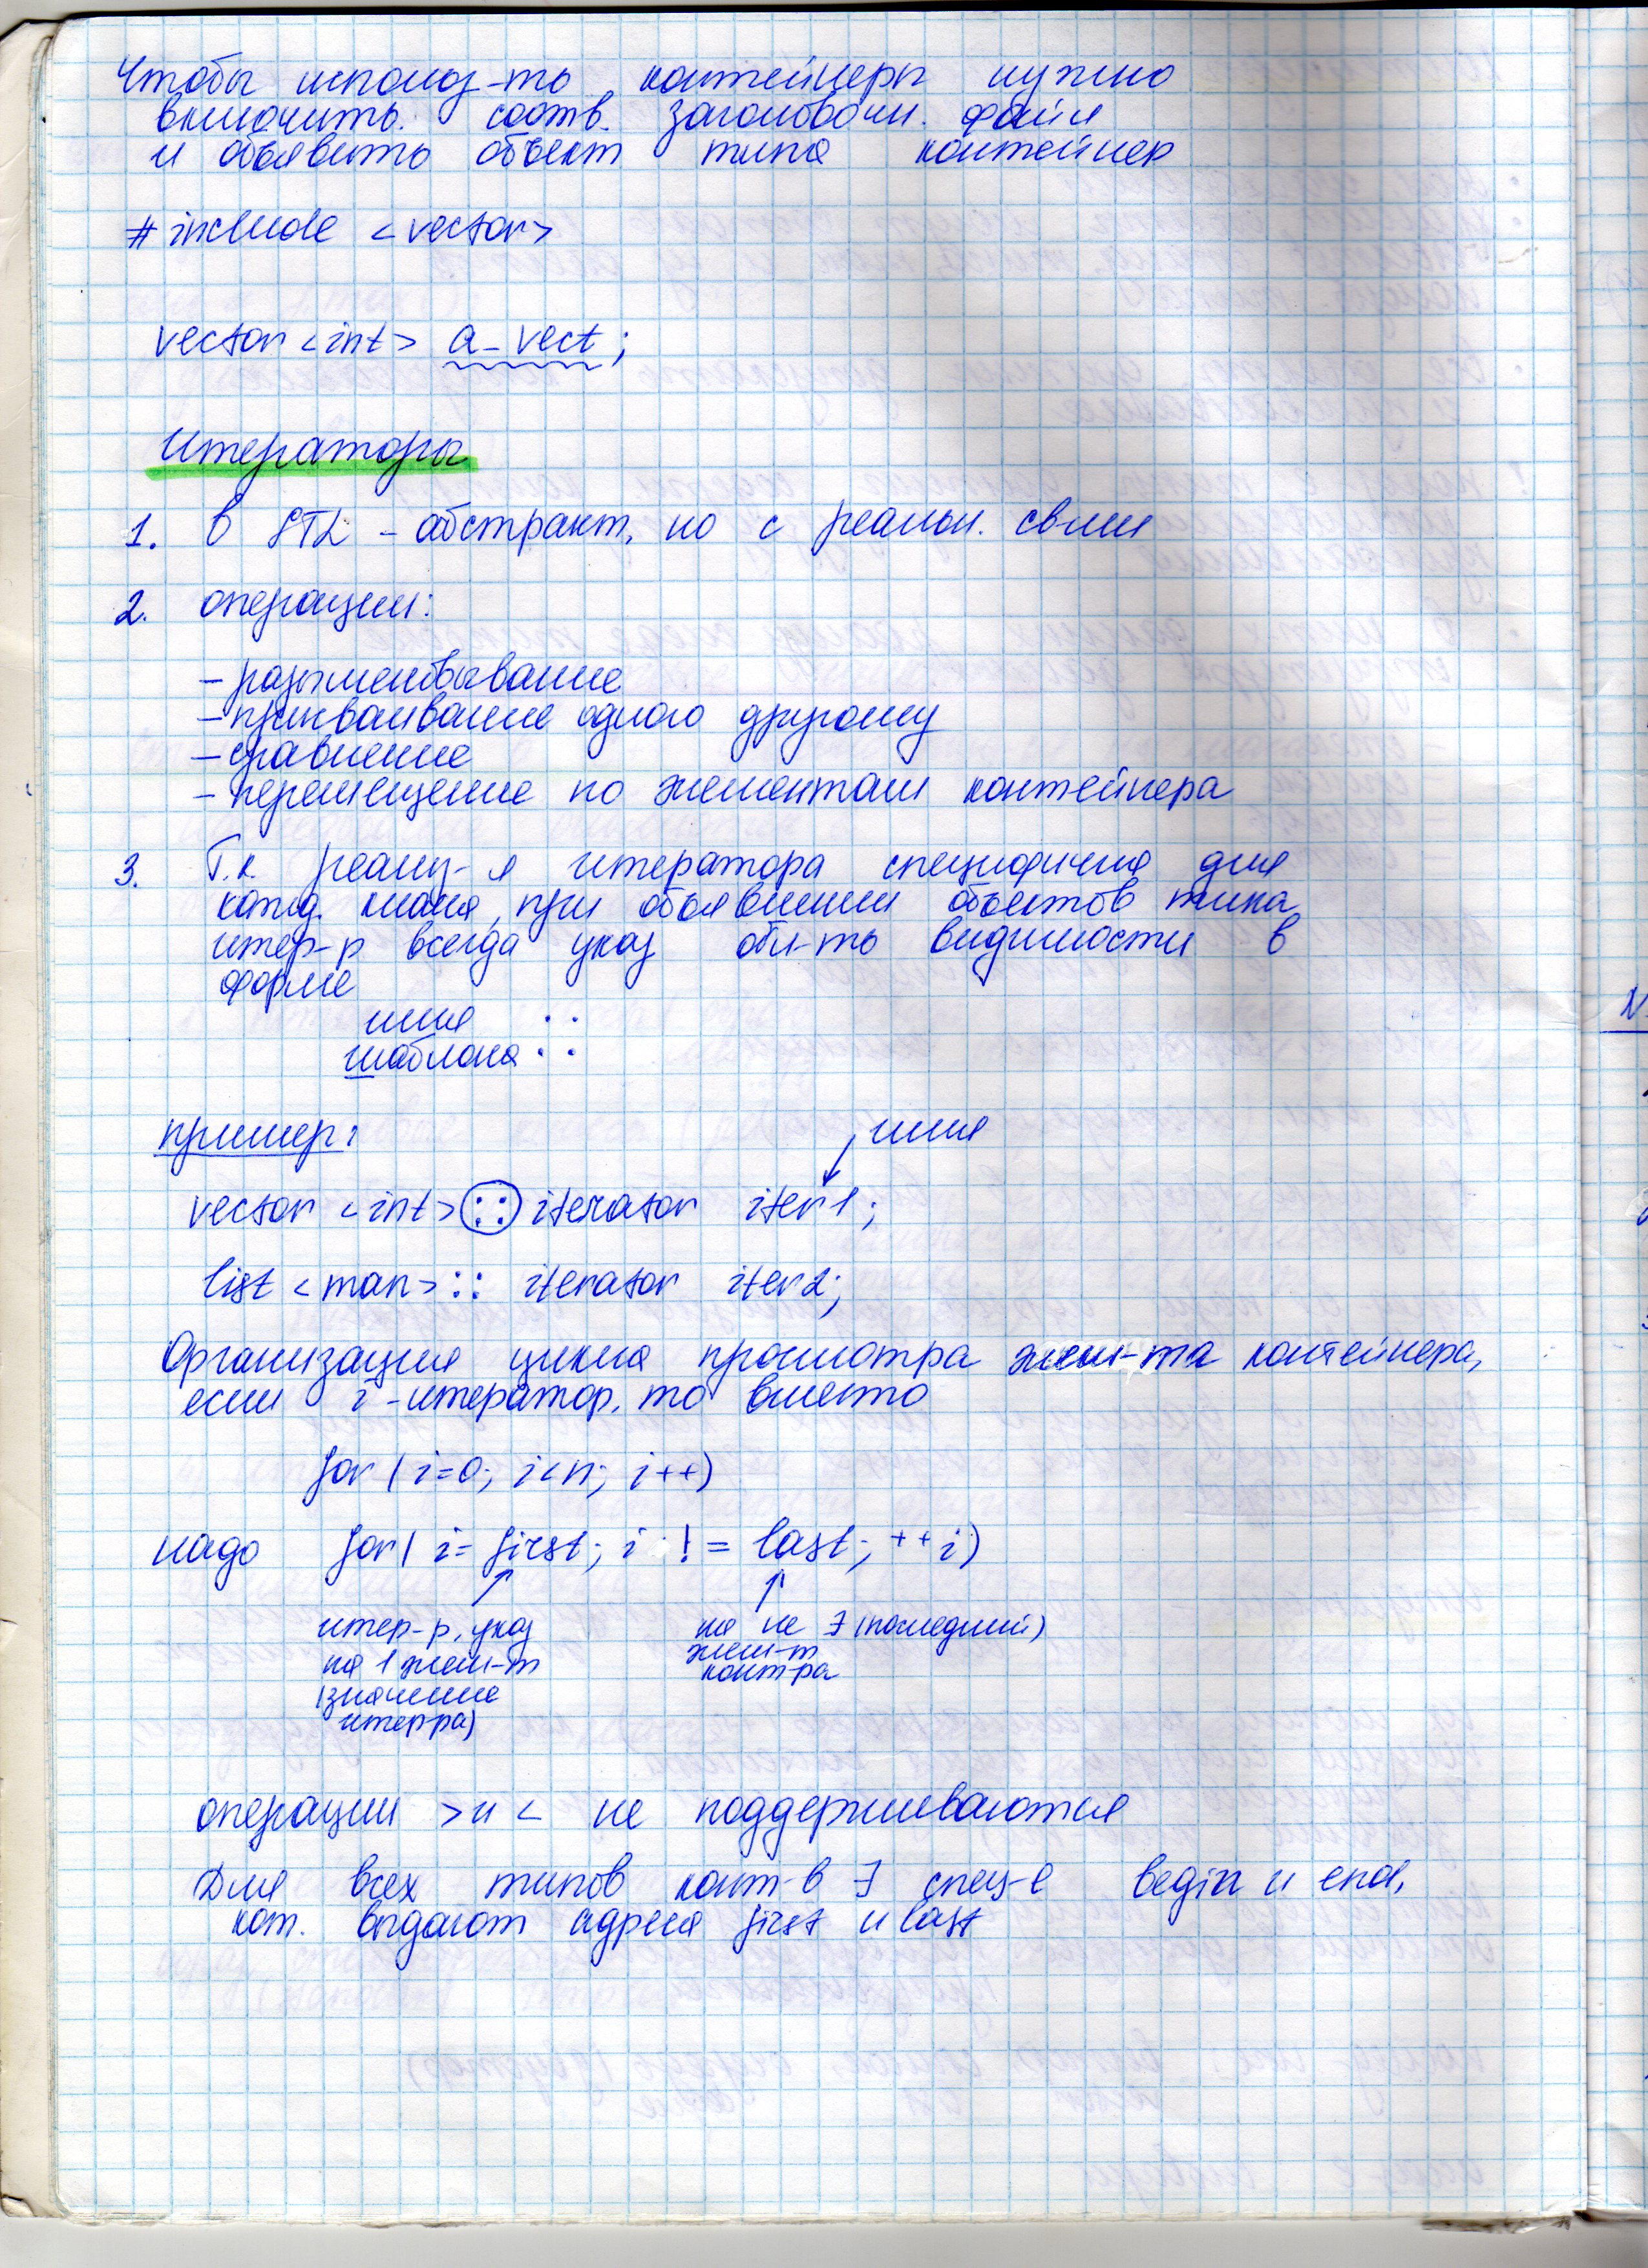 Чтобы использ-ть контейнеры нужно
включить соотв. заголовочн. файл
и объявить объект типа контейнер
#include <vector>
vector <int> a_vect;
Итераторы
1. В STL - абстракт, но с реальн. св-ми
2. операции:
- разыменовывание
- присваивание одного другому
- сравнение
- перемещение по элементам контейнера
3. Т.к. реализ-я итератора специфична для
кажд. класса, при объявлении объектов типа
итер-р всегда указ обл-ть видимости в
форме
имя
шаблона ::
пример:
имя
vector <int> :: iterator iter1;
list <man> :: iterator iter2;
Организация цикла просмотра элем-та контейнера,
если i - итератор, то вместо
for (i=0; i<n; i++)
надо for( i= first; i != last; ++i)
итер-р, указ на не ∃ (последний)
на 1 элем-т элем-т
(значение конт-ра
итер-ра)
операции > и < не поддерживаются
Для всех типов конт-в ∃ спец-е begin и end,
кот. выдают адреса first и last